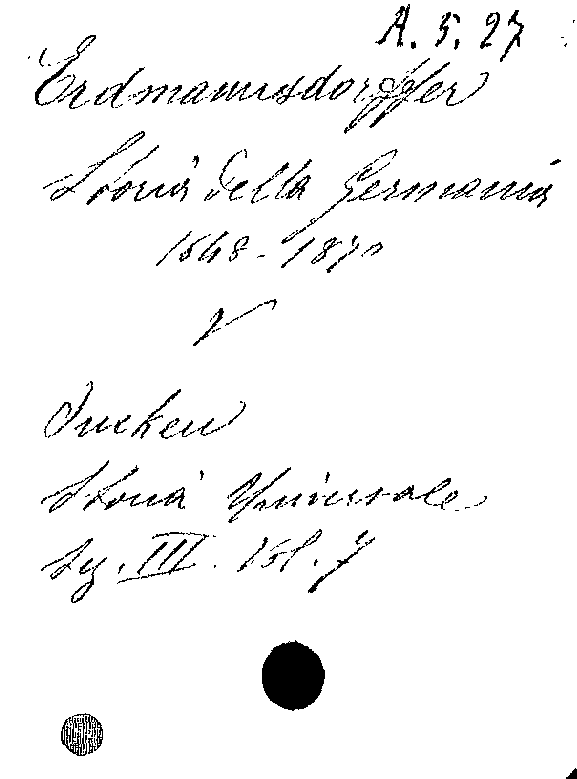 A. 5. 27
Erdmannsdorffer
Storia della Germania
1648-1870
V
Oncken
Storia Universale
Sez. III. Vol. 7